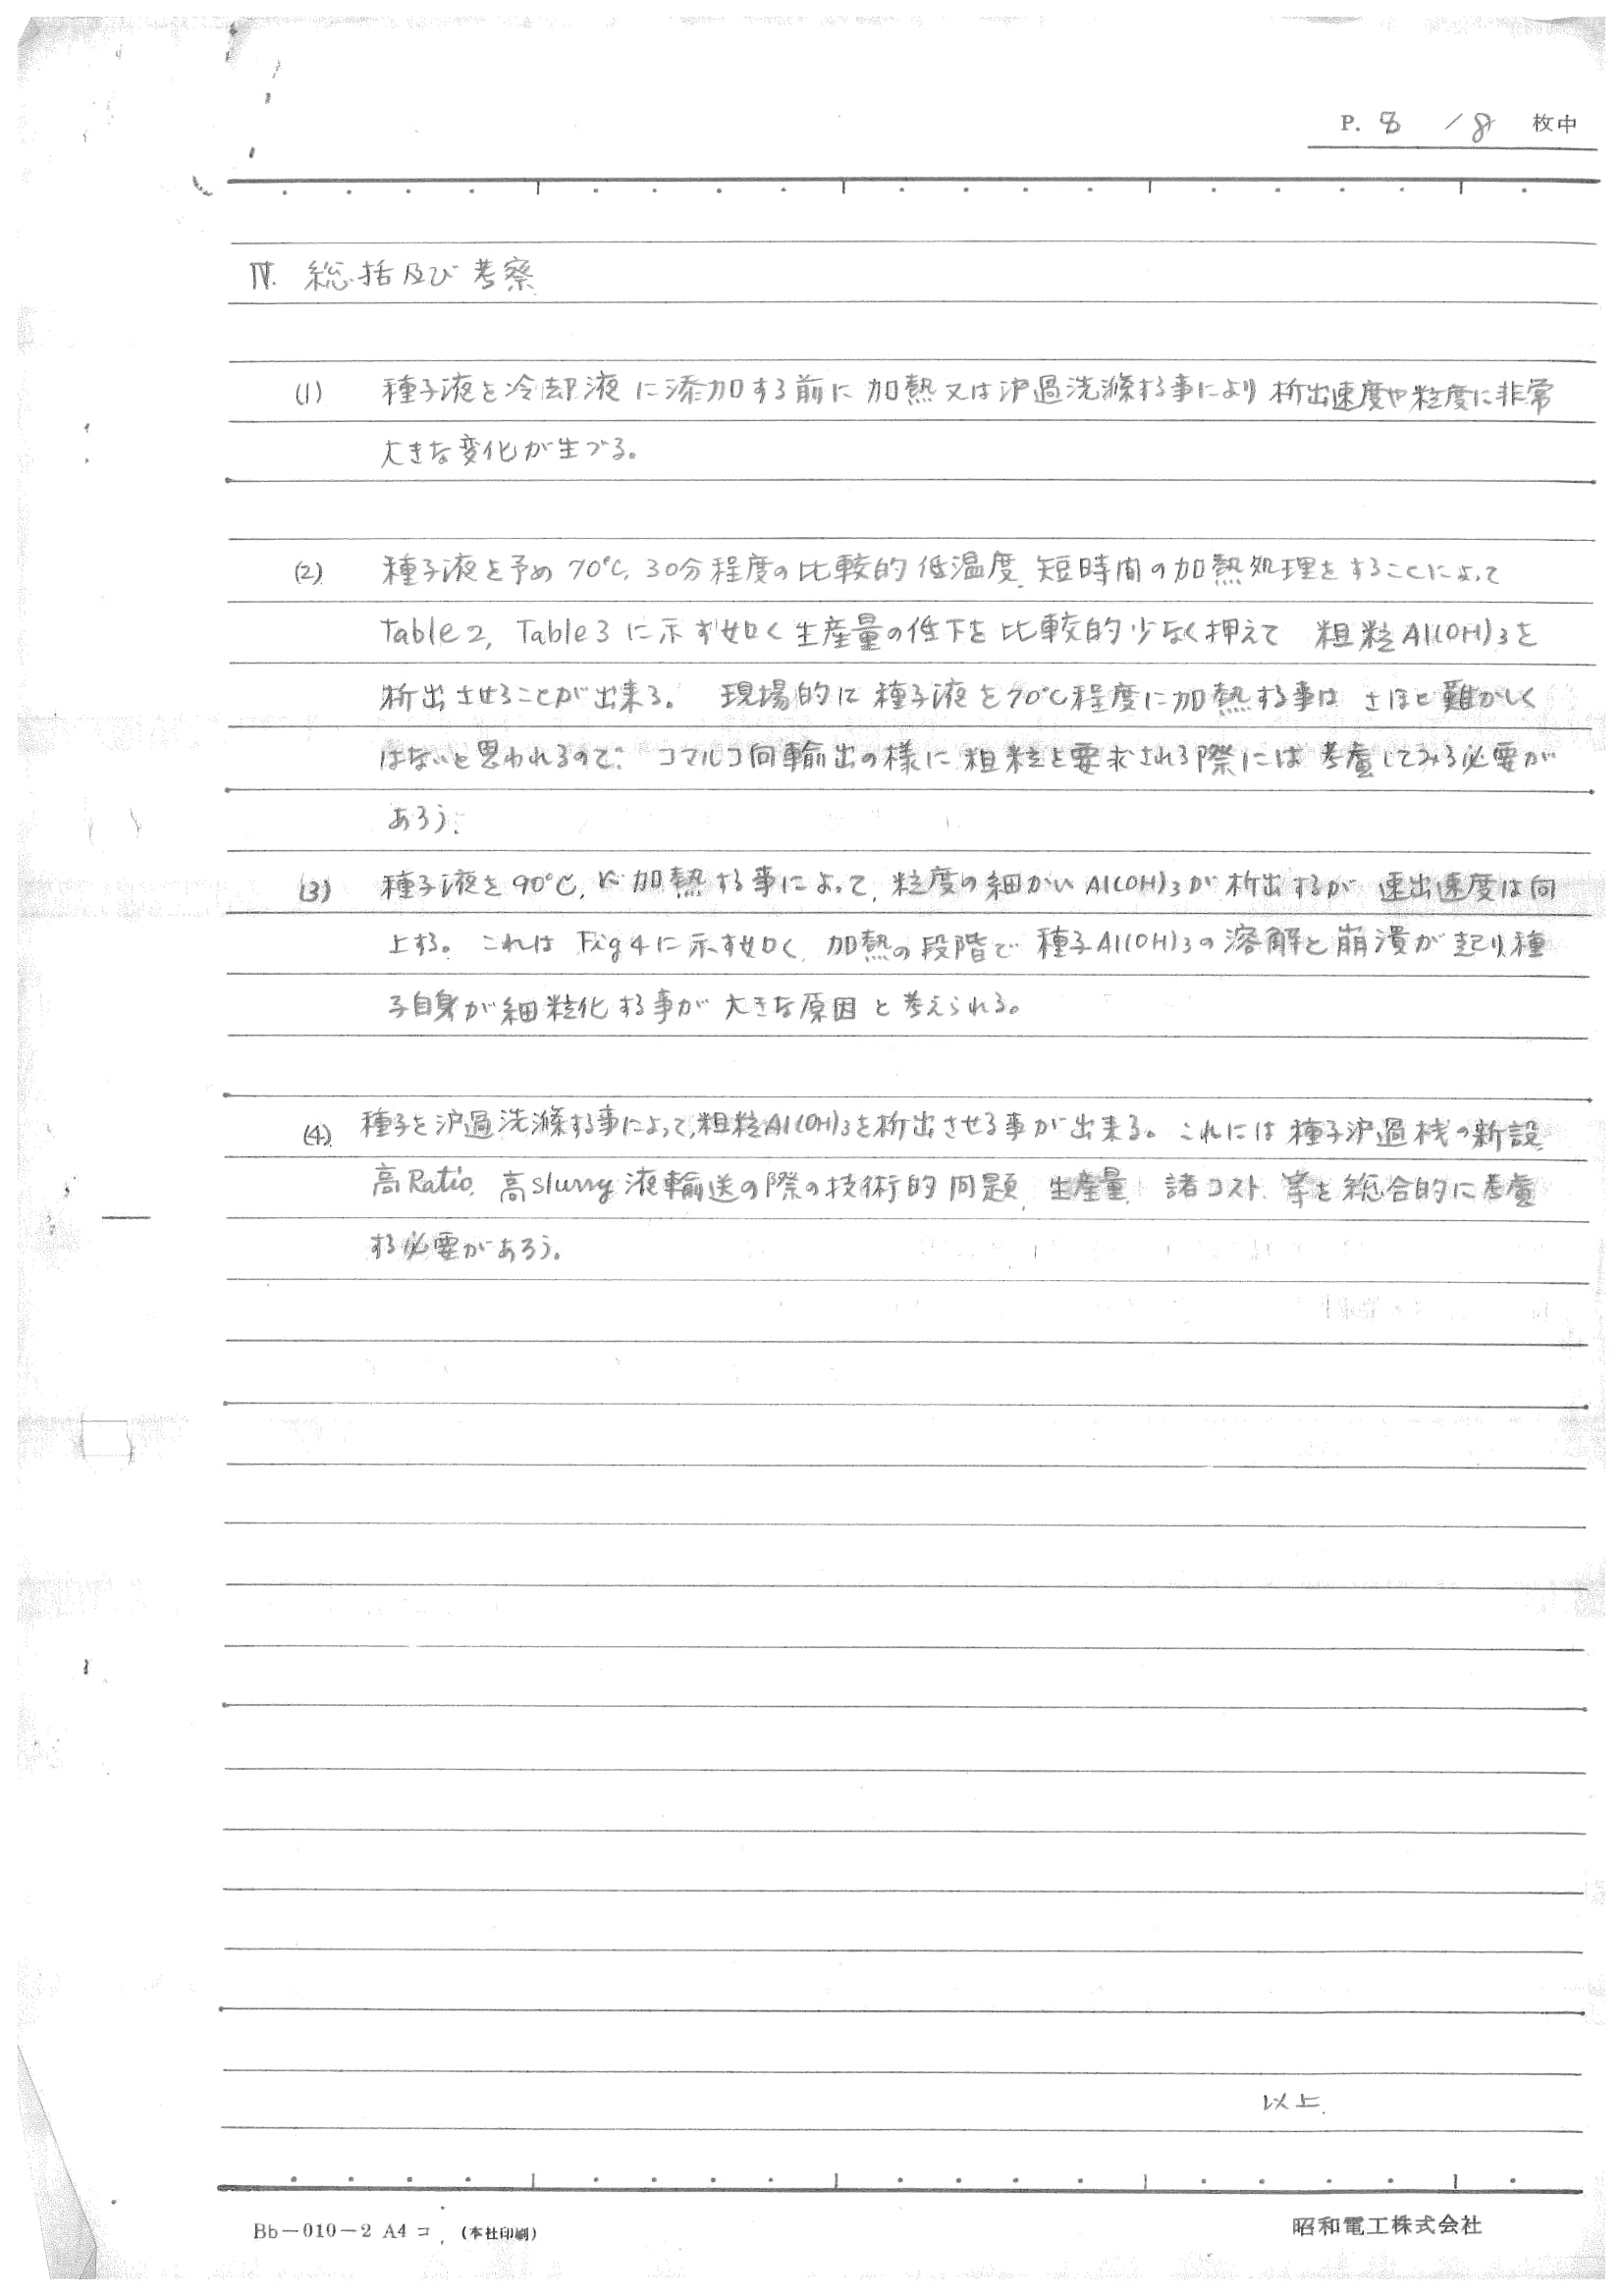 P. 8 / 8 枚中
Ⅳ. 総括及び考察
(1) 種子液を冷却液に添加する前に加熱又は沪過洗滌する事により析出速度や粒度に非常
大きな変化が生づる。
(2) 種子液を予め70℃, 30分程度の比較的低温度, 短時間の加熱処理をすることによって
Table 2, Table 3 に示す如く生産量の低下を比較的少なく押えて 粗粒Al(OH)3を
析出させることが出来る。 現場的に種子液を70℃程度に加熱する事は さほど難かしく
はないと思われるので、コマルコ向輸出の様に粗粒を要求される際には考慮してみる必要が
あろう.
(3) 種子液を90℃, に加熱する事によって, 粒度の細かいAl(OH)3が析出するが 速出速度は向
上する。これは Fig 4に示す如く, 加熱の段階で種子Al(OH)3の溶解と崩潰が起り種
子自身が細粒化する事が大きな原因と考えられる。
(4) 種子を沪過洗滌する事によって,粗粒Al(OH)3を析出させる事が出来る。これには種子沪過桟の新設
高Ratio, 高slurry液輸送の際の技術的問題, 生産量, 諸コスト, 等を総合的に考慮
する必要があろう。
以上.
Bb－010－2 A4 コ (本社印刷)
昭和電工株式会社